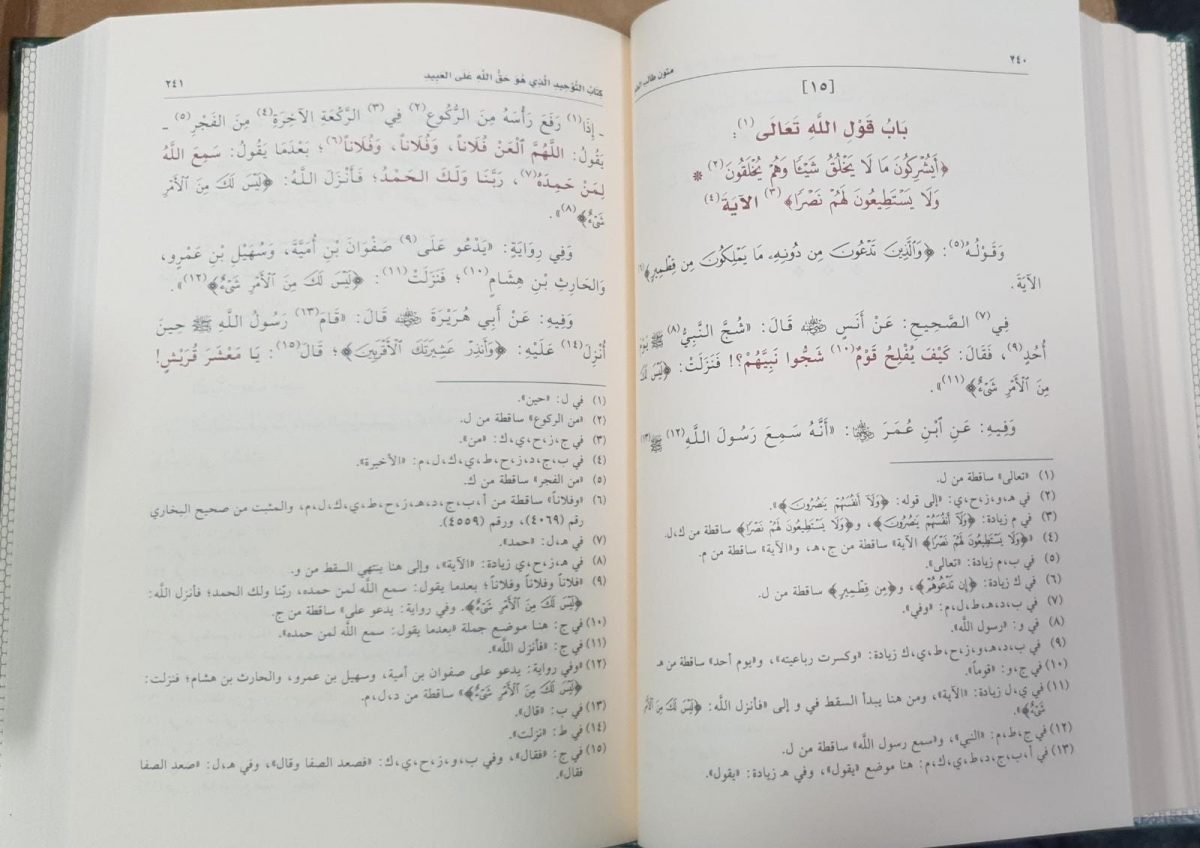 ٢٤٠
متون طالب العلم
[١٥]
بَابُ قَوْلِ اللَّهِ تَعَالَى(١):
﴿أَيُشْرِكُونَ مَا لَا يَخْلُقُ شَيْئًا وَهُمْ يُخْلَقُونَ(٢) *
وَلَا يَسْتَطِيعُونَ لَهُمْ نَصْرًا﴾(٣) الآيَةَ(٤)
وَقَوْلُهُ(٥): ﴿وَالَّذِينَ تَدْعُونَ مِن دُونِهِ مَا يَمْلِكُونَ مِن قِطْمِيرٍ﴾(٦)
الآيَةَ.
فِي(٧) الصَّحِيحِ: عَنْ أَنَسٍ ﵁ قَالَ: «شُجَّ النَّبِيُّ(٨) ﷺ يَوْمَ
أُحُدٍ(٩)، فَقَالَ: كَيْفَ يُفْلِحُ قَوْمٌ(١٠) شَجُّوا نَبِيَّهُمْ؟! فَنَزَلَتْ: ﴿لَيْسَ لَكَ
مِنَ الْأَمْرِ شَيْءٌ﴾(١١)».
وَفِيهِ: عَنِ ابْنِ عُمَرَ ﵄: «أَنَّهُ سَمِعَ رَسُولَ اللَّهِ(١٢) ﷺ(١٣)
(١) «تعالى» ساقطة من ل.
(٢) في هـ،و،ز،ح،ي: «إلى قوله: ﴿وَلَا أَنفُسَهُمْ يَنصُرُونَ﴾».
(٣) في م زيادة: ﴿وَلَا أَنفُسَهُمْ يَنصُرُونَ﴾، و﴿وَلَا يَسْتَطِيعُونَ لَهُمْ نَصْرًا﴾ ساقطة من ك،ل.
(٤) «﴿وَلَا يَسْتَطِيعُونَ لَهُمْ نَصْرًا﴾ الآية» ساقطة من ج،هـ، و«الآية» ساقطة من م.
(٥) في ب،م زيادة: «تعالى».
(٦) في ك زيادة: ﴿إِن تَدْعُوهُمْ﴾، و﴿مِن قِطْمِيرٍ﴾ ساقطة من ل.
(٧) في ب،د،هـ،ط،ل،م: «وفي».
(٨) في و: «رسول الله».
(٩) في ب،د،هـ،و،ز،ح،ط،ي،ك زيادة: «وكسرت رباعيته»، و«يوم أحد» ساقطة من هـ
(١٠) في ج،و: «قوماً».
(١١) في ي،ل زيادة: «الآية»، ومن هنا يبدأ السقط في و إلى «فأنزل اللَّه: ﴿لَيْسَ لَكَ مِنَ الْأَمْرِ
شَيْءٌ﴾».
(١٢) في ج،ط،م: «النبي»، و«سمع رسول اللَّه» ساقطة من ل.
(١٣) في أ،ب،ج،د،ط،ي،ك،م: هنا موضع «يقول»، وفي هـ زيادة: «يقول».
كتَابُ التَّوْحِيدِ الَّذِي هُوَ حَقُّ اللَّهِ عَلَى العَبِيدِ
٢٤١
ـ إِذَا(١) رَفَعَ رَأْسَهُ مِنَ الرُّكُوعِ(٢) فِي(٣) الرَّكْعَةِ الآخِرَةِ(٤) مِنَ الفَجْرِ(٥) ـ
يَقُولُ: اللَّهُمَّ الْعَنْ فُلَاناً، وَفُلَاناً، وَفُلَاناً(٦)؛ بَعْدَمَا يَقُولُ: سَمِعَ اللَّهُ
لِمَنْ حَمِدَهُ(٧)، رَبَّنَا وَلَكَ الحَمْدُ؛ فَأَنْزَلَ اللَّهُ: ﴿لَيْسَ لَكَ مِنَ الْأَمْرِ
شَيْءٌ﴾(٨)».
وَفِي رِوَايَةٍ: «يَدْعُو عَلَى(٩) صَفْوَانَ بْنِ أُمَيَّةَ، وَسُهَيْلِ بْنِ عَمْرٍو،
وَالحَارِثِ بْنِ هِشَامٍ(١٠)؛ فَنَزَلَتْ(١١): ﴿لَيْسَ لَكَ مِنَ الْأَمْرِ شَيْءٌ﴾(١٢)».
وَفِيهِ: عَنْ أَبِي هُرَيْرَةَ ﵁ قَالَ: «قَامَ(١٣) رَسُولُ اللَّهِ ﷺ حِينَ
أُنْزِلَ(١٤) عَلَيْهِ: ﴿وَأَنذِرْ عَشِيرَتَكَ الْأَقْرَبِينَ﴾؛ قَالَ(١٥): يَا مَعْشَرَ قُرَيْشٍ!
(١) في ل: «حين».
(٢) «من الركوع» ساقطة من ل.
(٣) في ج،ز،ح،ي،ك: «من».
(٤) في ب،ج،د،ز،ح،ط،ي،ك،ل،م: «الأخيرة».
(٥) «من الفجر» ساقطة من ك.
(٦) «وفلاناً» ساقطة من أ،ب،ج،د،هـ،ز،ح،ط،ي،ك،ل،م، والمثبت من صحيح البخاري
رقم (٤٠٦٩)، ورقم (٤٥٥٩).
(٧) في هـ،ل: «حمد».
(٨) في هـ،ز،ح،ي زيادة: «الآية»، وإلى هنا ينتهي السقط من و.
(٩) «فلاناً وفلاناً وفلاناً؛ بعدما يقول: سمع اللَّه لمن حمده، ربّنا ولك الحمد؛ فأنزل اللَّه:
﴿لَيْسَ لَكَ مِنَ الْأَمْرِ شَيْءٌ﴾. وفي رواية: يدعو على» ساقطة من ج.
(١٠) في ج: هنا موضع جملة «بعدما يقول: سمع اللَّه لمن حمده».
(١١) في ج: «فأنزل اللَّه».
(١٢) «وفي رواية: يدعو على صفوان بن أمية، وسهيل بن عمرو، والحارث بن هشام؛ فنزلت:
﴿لَيْسَ لَكَ مِنَ الْأَمْرِ شَيْءٌ﴾» ساقطة من د،ل،م.
(١٣) في ب: «قال».
(١٤) في ط: «نزلت».
(١٥) في ج: «فقال»، وفي ب،و،ز،ح،ي،ك: «فصعد الصفا وقال»، وفي هـ،ل: «صعد الصفا
فقال».